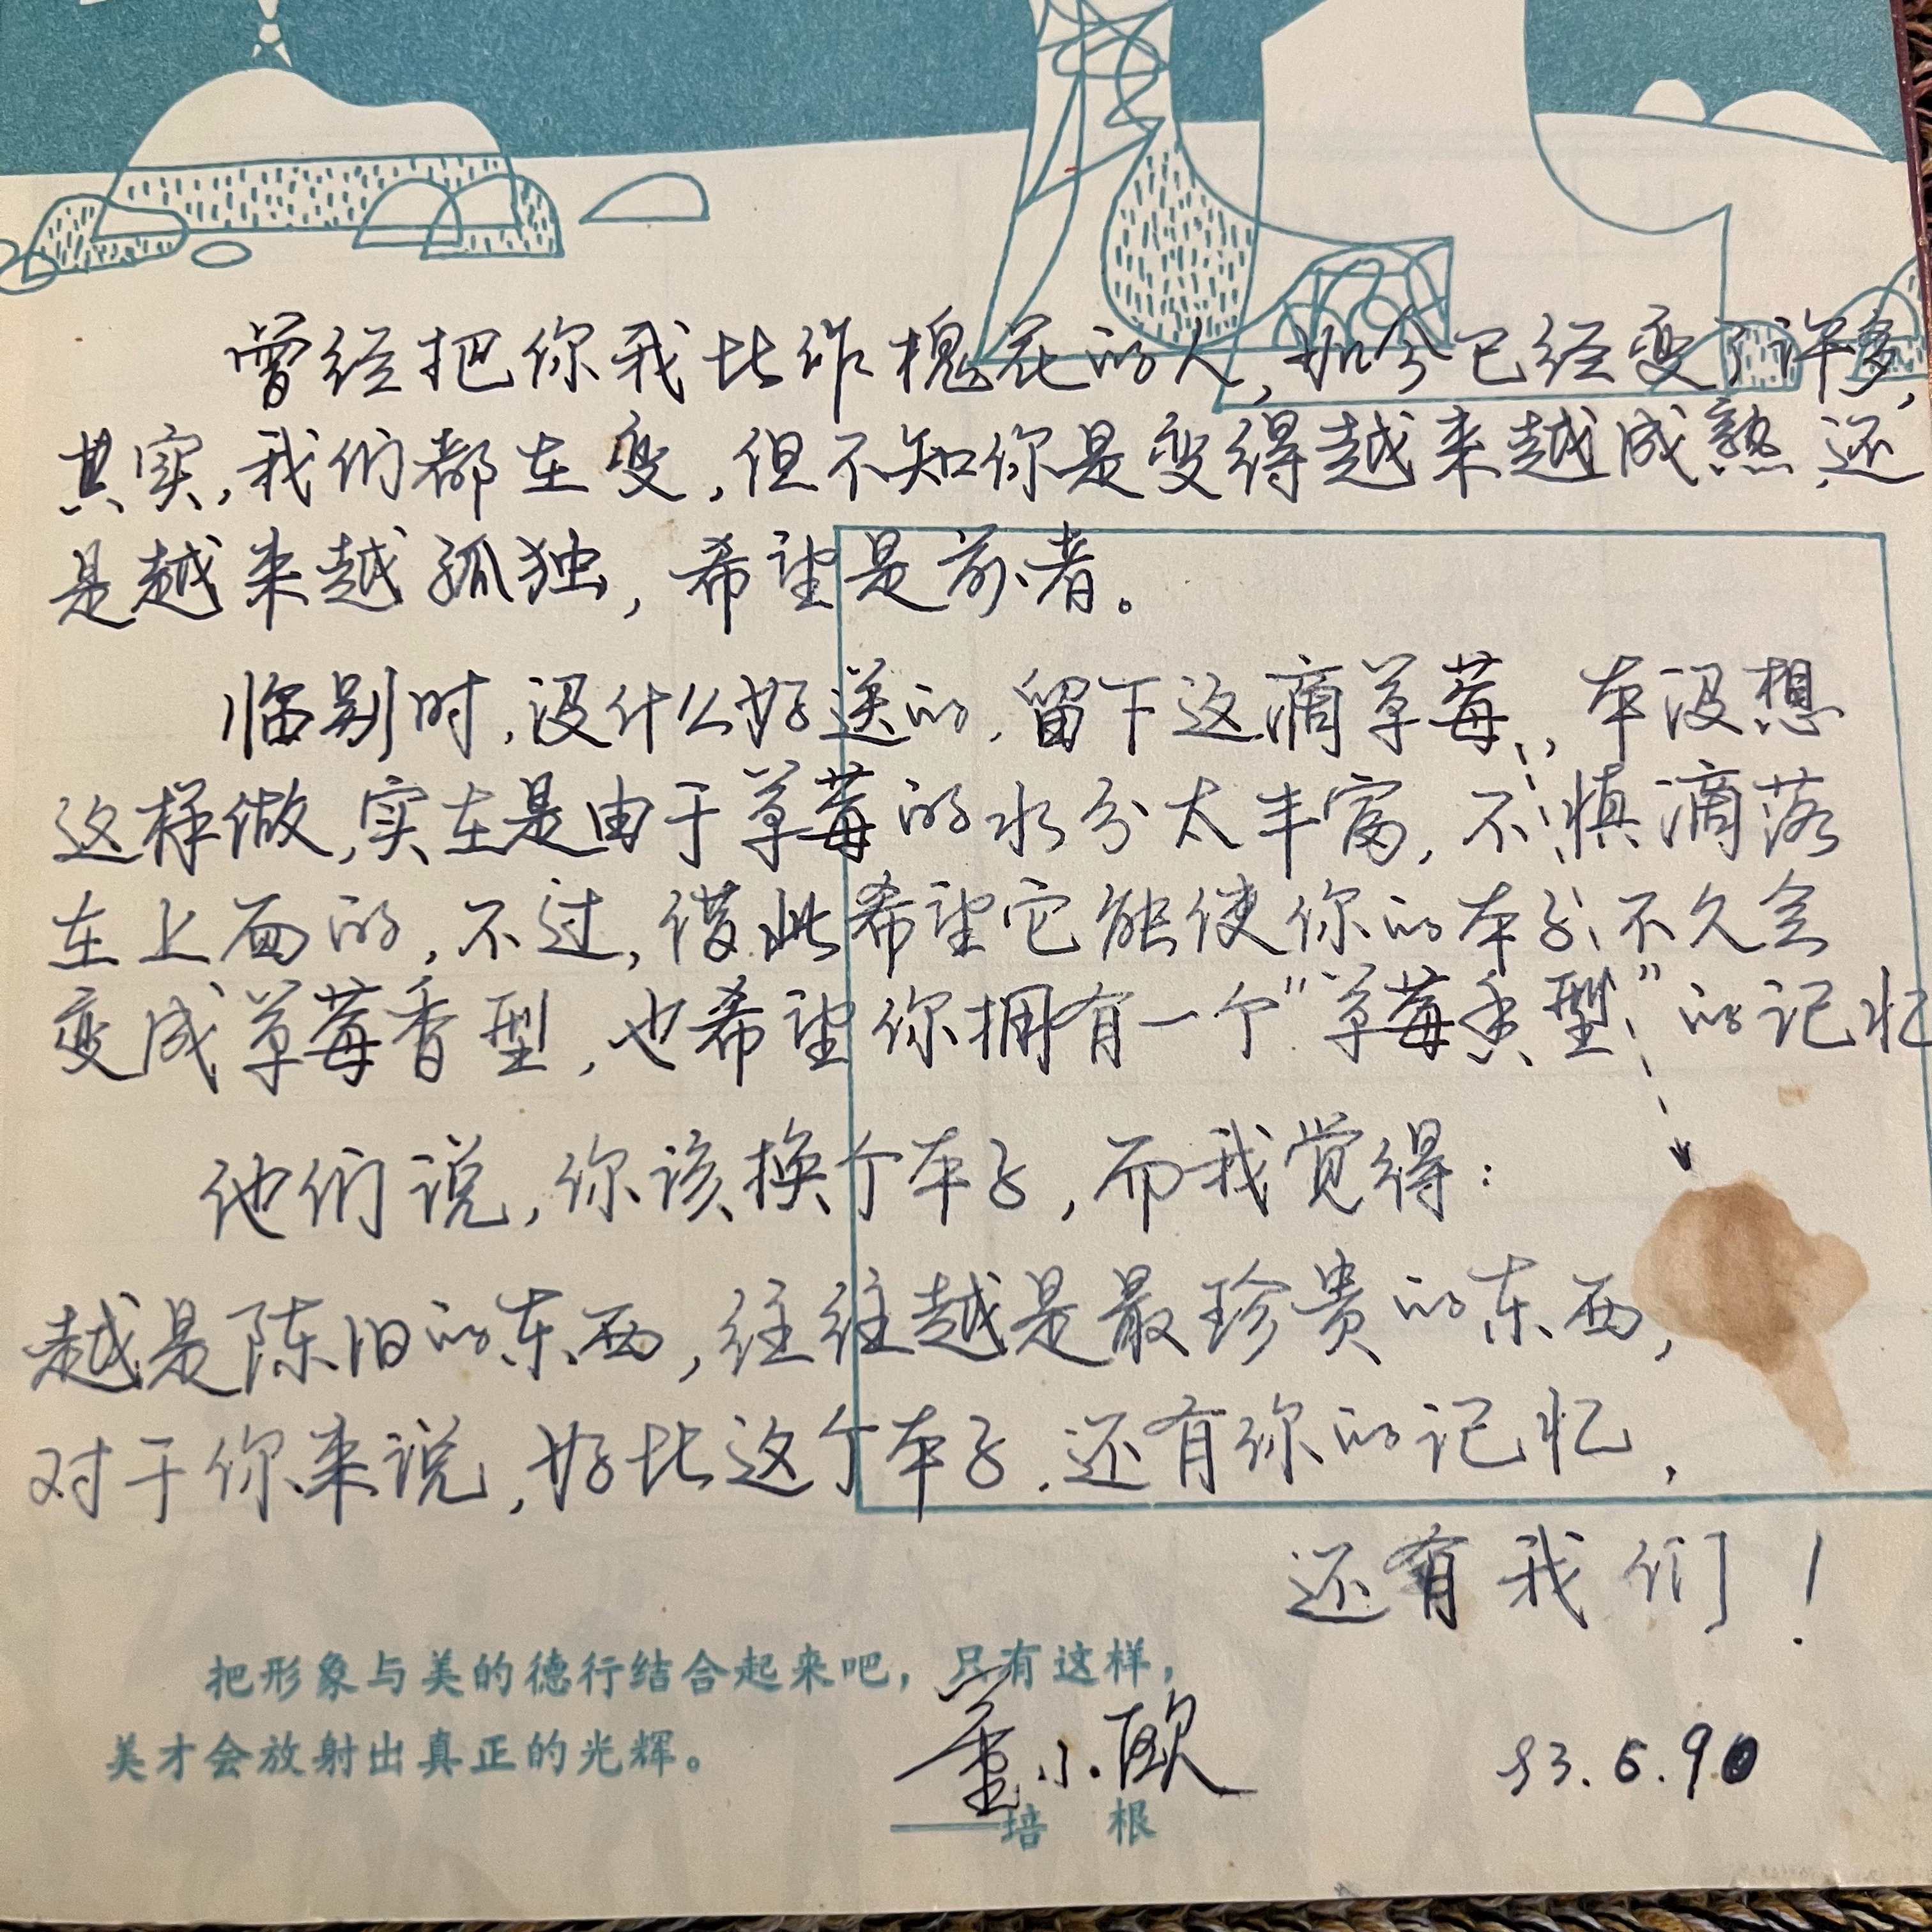 曾经把你我比作槐花的人，如今已经变了许多，
其实，我们都在变，但不知你是变得越来越成熟，还
是越来越孤独，希望是前者。
临别时，没什么好送的，留下这滴草莓，本没想
这样做，实在是由于草莓的水分太丰富，不慎滴落
在上面的，不过，借此希望它能使你的本子不久会
变成草莓香型，也希望你拥有一个“草莓香型”的记忆
他们说，你该换个本子，而我觉得：
越是陈旧的东西，往往越是最珍贵的东西，
对于你来说，好比这个本子，还有你的记忆，
还有我们！
把形象与美的德行结合起来吧，只有这样，
美才会放射出真正的光辉。
——培根
董小欧
93.6.90